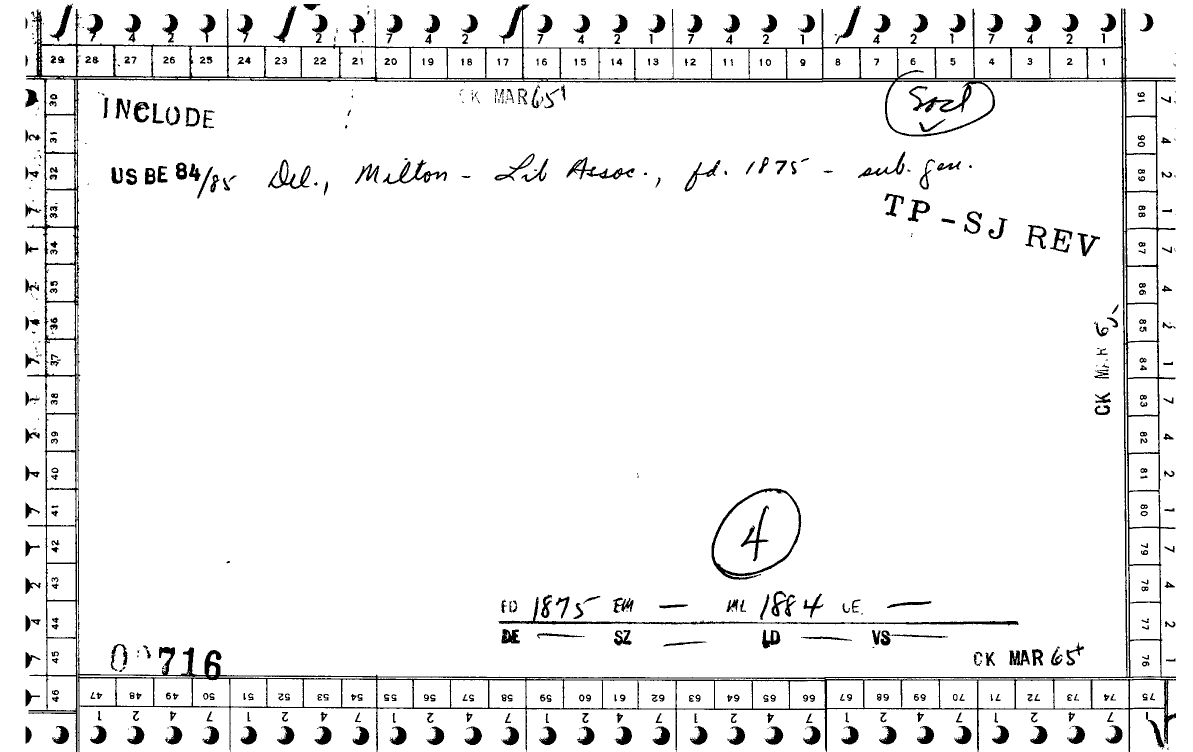 7 4 2 1 7 4 2 1 7 4 2 1 7 4 2 1 7 4 2 1 7 4 2 1
29 28 27 26 25 24 23 22 21 20 19 18 17 16 15 14 13 12 11 10 9 8 7 6 5 4 3 2 1
INCLUDE
CK MAR 65+
Socl
US BE 84/85 Del., Milton - Lib Assoc., fd. 1875 - sub. gen.
TP-SJ REV
CK MAR
4
FD 1875 EM — ML 1884 UE. —
DE — SZ — LD — VS —
716
CK MAR 65+
30 31 32 33 34 35 36 37 38 39 40 41 42 43 44 45 46
91 90 89 88 87 86 85 84 83 82 81 80 79 78 77 76
7 4 2 1 7 4 2 1 7 4 2 1 7 4 2 1
47 48 49 50 51 52 53 54 55 56 57 58 59 60 61 62 63 64 65 66 67 68 69 70 71 72 73 74 75
1 2 4 7 1 2 4 7 1 2 4 7 1 2 4 7 1 2 4 7 1 2 4 7 1 2 4 7